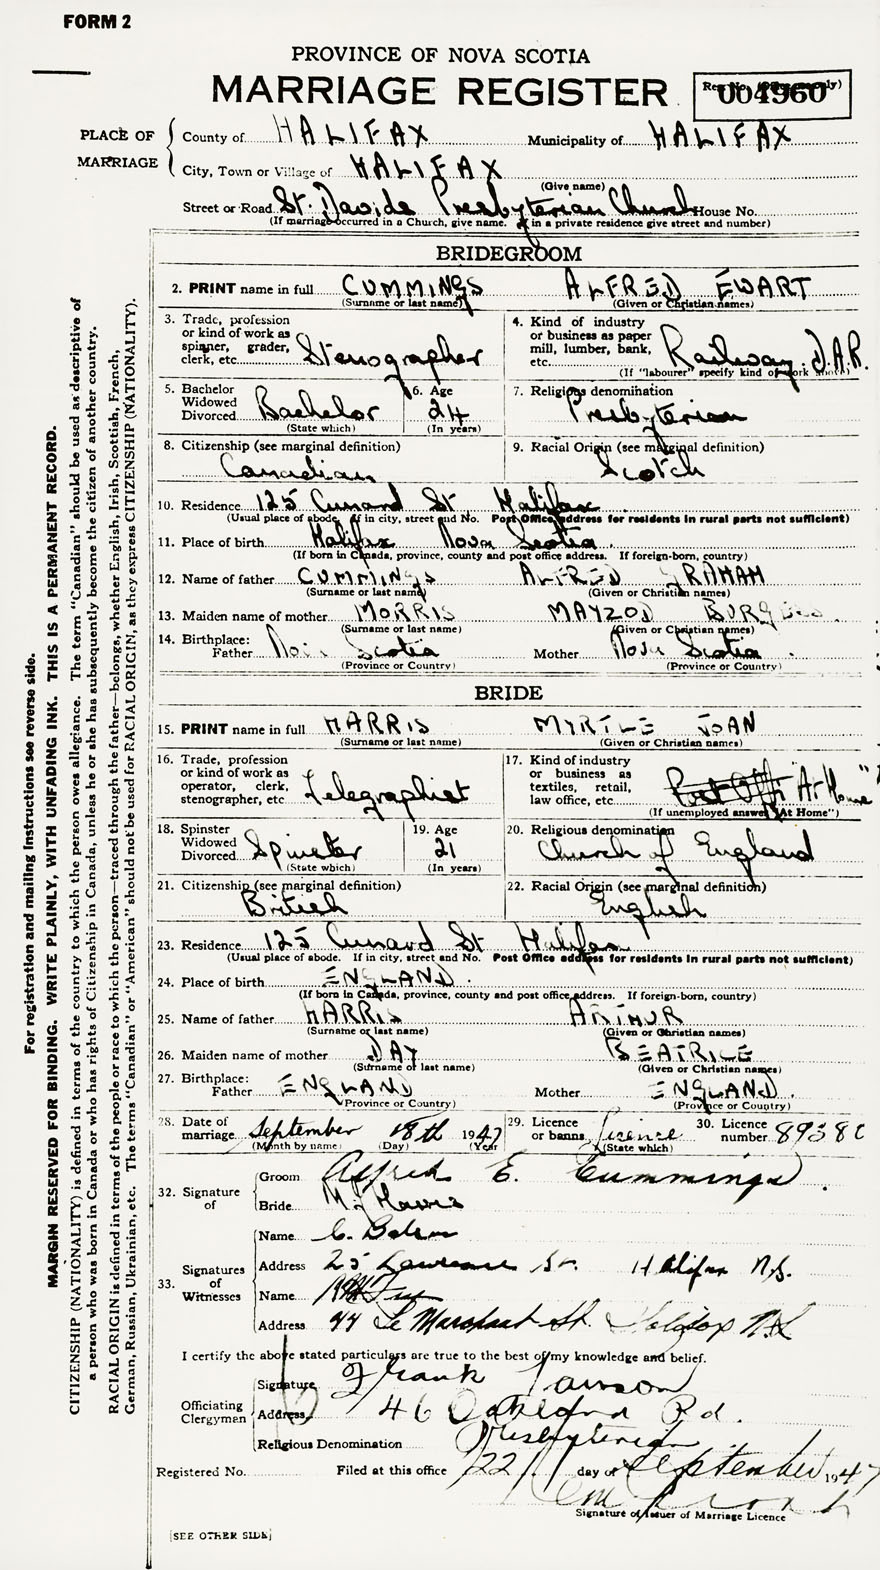 FORM 2
PROVINCE OF NOVA SCOTIA
MARRIAGE REGISTER
004960
PLACE OF MARRIAGE
County of HALIFAX Municipality of HALIFAX
City, Town or Village of HALIFAX
(Give name)
Street or Road St. Davids Presbyterian Church House No.
(If marriage occurred in a Church, give name. If in a private residence give street and number)
BRIDEGROOM
2. PRINT name in full CUMMINGS ALFRED EWART
(Surname or last name) (Given or Christian names)
3. Trade, profession or kind of work as spinner, grader, clerk, etc. Stenographer
4. Kind of industry or business as paper mill, lumber, bank, etc. Railway. D.A.R.
(If "labourer" specify kind of work above)
5. Bachelor Widowed Divorced Bachelor
(State which)
6. Age 24
(In years)
7. Religious denomination
Presbyterian
8. Citizenship (see marginal definition)
Canadian
9. Racial Origin (see marginal definition)
Scotch
10. Residence 125 Cunard St Halifax
(Usual place of abode. If in city, street and No. Post Office address for residents in rural parts not sufficient)
11. Place of birth Halifax Nova Scotia.
(If born in Canada, province, county and post office address. If foreign-born, country)
12. Name of father CUMMINGS ALFRED GRAHAM
(Surname or last name) (Given or Christian names)
13. Maiden name of mother MORRIS MAYZOD
(Surname or last name) (Given or Christian names)
14. Birthplace:
Father Nova Scotia Mother Nova Scotia.
(Province or Country) (Province or Country)
BRIDE
15. PRINT name in full HARRIS MYRTLE JOAN
(Surname or last name) (Given or Christian names)
16. Trade, profession or kind of work as operator, clerk, stenographer, etc Telegraphist
17. Kind of industry or business as textiles, retail, law office, etc. Post Office "At Home"
(If unemployed answer "At Home")
18. Spinster Widowed Divorced Spinster
(State which)
19. Age
21
(In years)
20. Religious denomination
Church of England
21. Citizenship (see marginal definition)
British
22. Racial Origin (see marginal definition)
English
23. Residence 125 Cunard St Halifax
(Usual place of abode. If in city, street and No. Post Office address for residents in rural parts not sufficient)
24. Place of birth ENGLAND.
(If born in Canada, province, county and post office address. If foreign-born, country)
25. Name of father HARRIS ARTHUR
(Surname or last name) (Given or Christian names)
26. Maiden name of mother DAY BEATRICE
(Surname or last name) (Given or Christian names)
27. Birthplace:
Father ENGLAND Mother ENGLAND.
(Province or Country) (Province or Country)
28. Date of marriage September 18th 1947
(Month by name) (Day) (Year
29. Licence or banns licence
(State which)
30. Licence number
32. Signature of
Groom Alfred E. Cummings.
Bride M. J. Harris
33. Signatures of Witnesses
Name
Address 25 Lawrence St. Halifax N.S.
Name
Address 44 Le Marchant St. Halifax N.S.
I certify the above stated particulars are true to the best of my knowledge and belief.
Officiating Clergyman
Signature Frank Lawson
Address 46 Oakland Rd.
Religious Denomination Presbyterian
Registered No. Filed at this office 22 day of September 1947
Signature of Issuer of Marriage Licence
[SEE OTHER SIDE]
For registration and mailing instructions see reverse side.
MARGIN RESERVED FOR BINDING. WRITE PLAINLY, WITH UNFADING INK. THIS IS A PERMANENT RECORD.
CITIZENSHIP (NATIONALITY) is defined in terms of the country to which the person owes allegiance. The term "Canadian" should be used as descriptive of
a person who was born in Canada or who has rights of Citizenship in Canada, unless he or she has subsequently become the citizen of another country.
RACIAL ORIGIN is defined in terms of the people or race to which the person—traced through the father—belongs, whether English, Irish, Scottish, French,
German, Russian, Ukrainian, etc. The terms "Canadian" or "American" should not be used for RACIAL ORIGIN, as they express CITIZENSHIP (NATIONALITY).